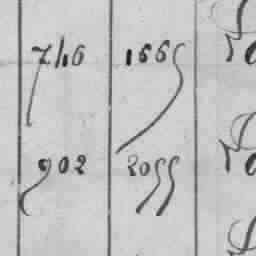 746 1665
902 2055